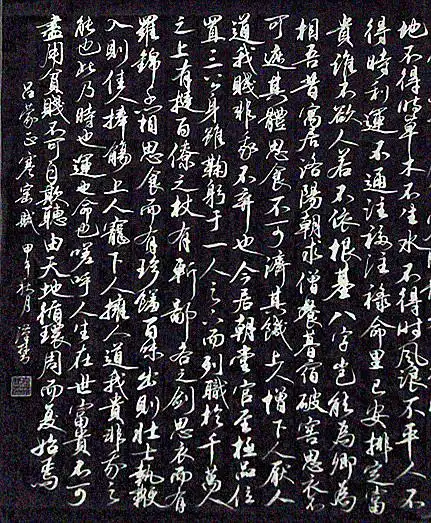 地不得時草木不生水不得時風浪不平人不
得時利運不通注福注祿命里已安排定富
貴誰不欲人若不依根基八字豈能為卿為
相吾昔寓居洛陽朝求僧餐暮宿破窖思衣不
可遮其體思食不可濟其饑上人憎下人厭人
道我賤非我不棄也今居朝堂官至極品位
置三公身雖鞠躬于一人之下而列職於千萬人
之上有撻百僚之杖有斬鄙吝之劍思衣而有
羅錦千箱思食而有珍饈百味出則壯士執鞭
入則佳人捧觴上人寵下人擁人道我貴非我之
能也此乃時也運也命也嗟呼人生在世富貴不可
盡用貧賤不可自欺聽由天地循環周而复始焉
呂蒙正寒窑賦 甲午